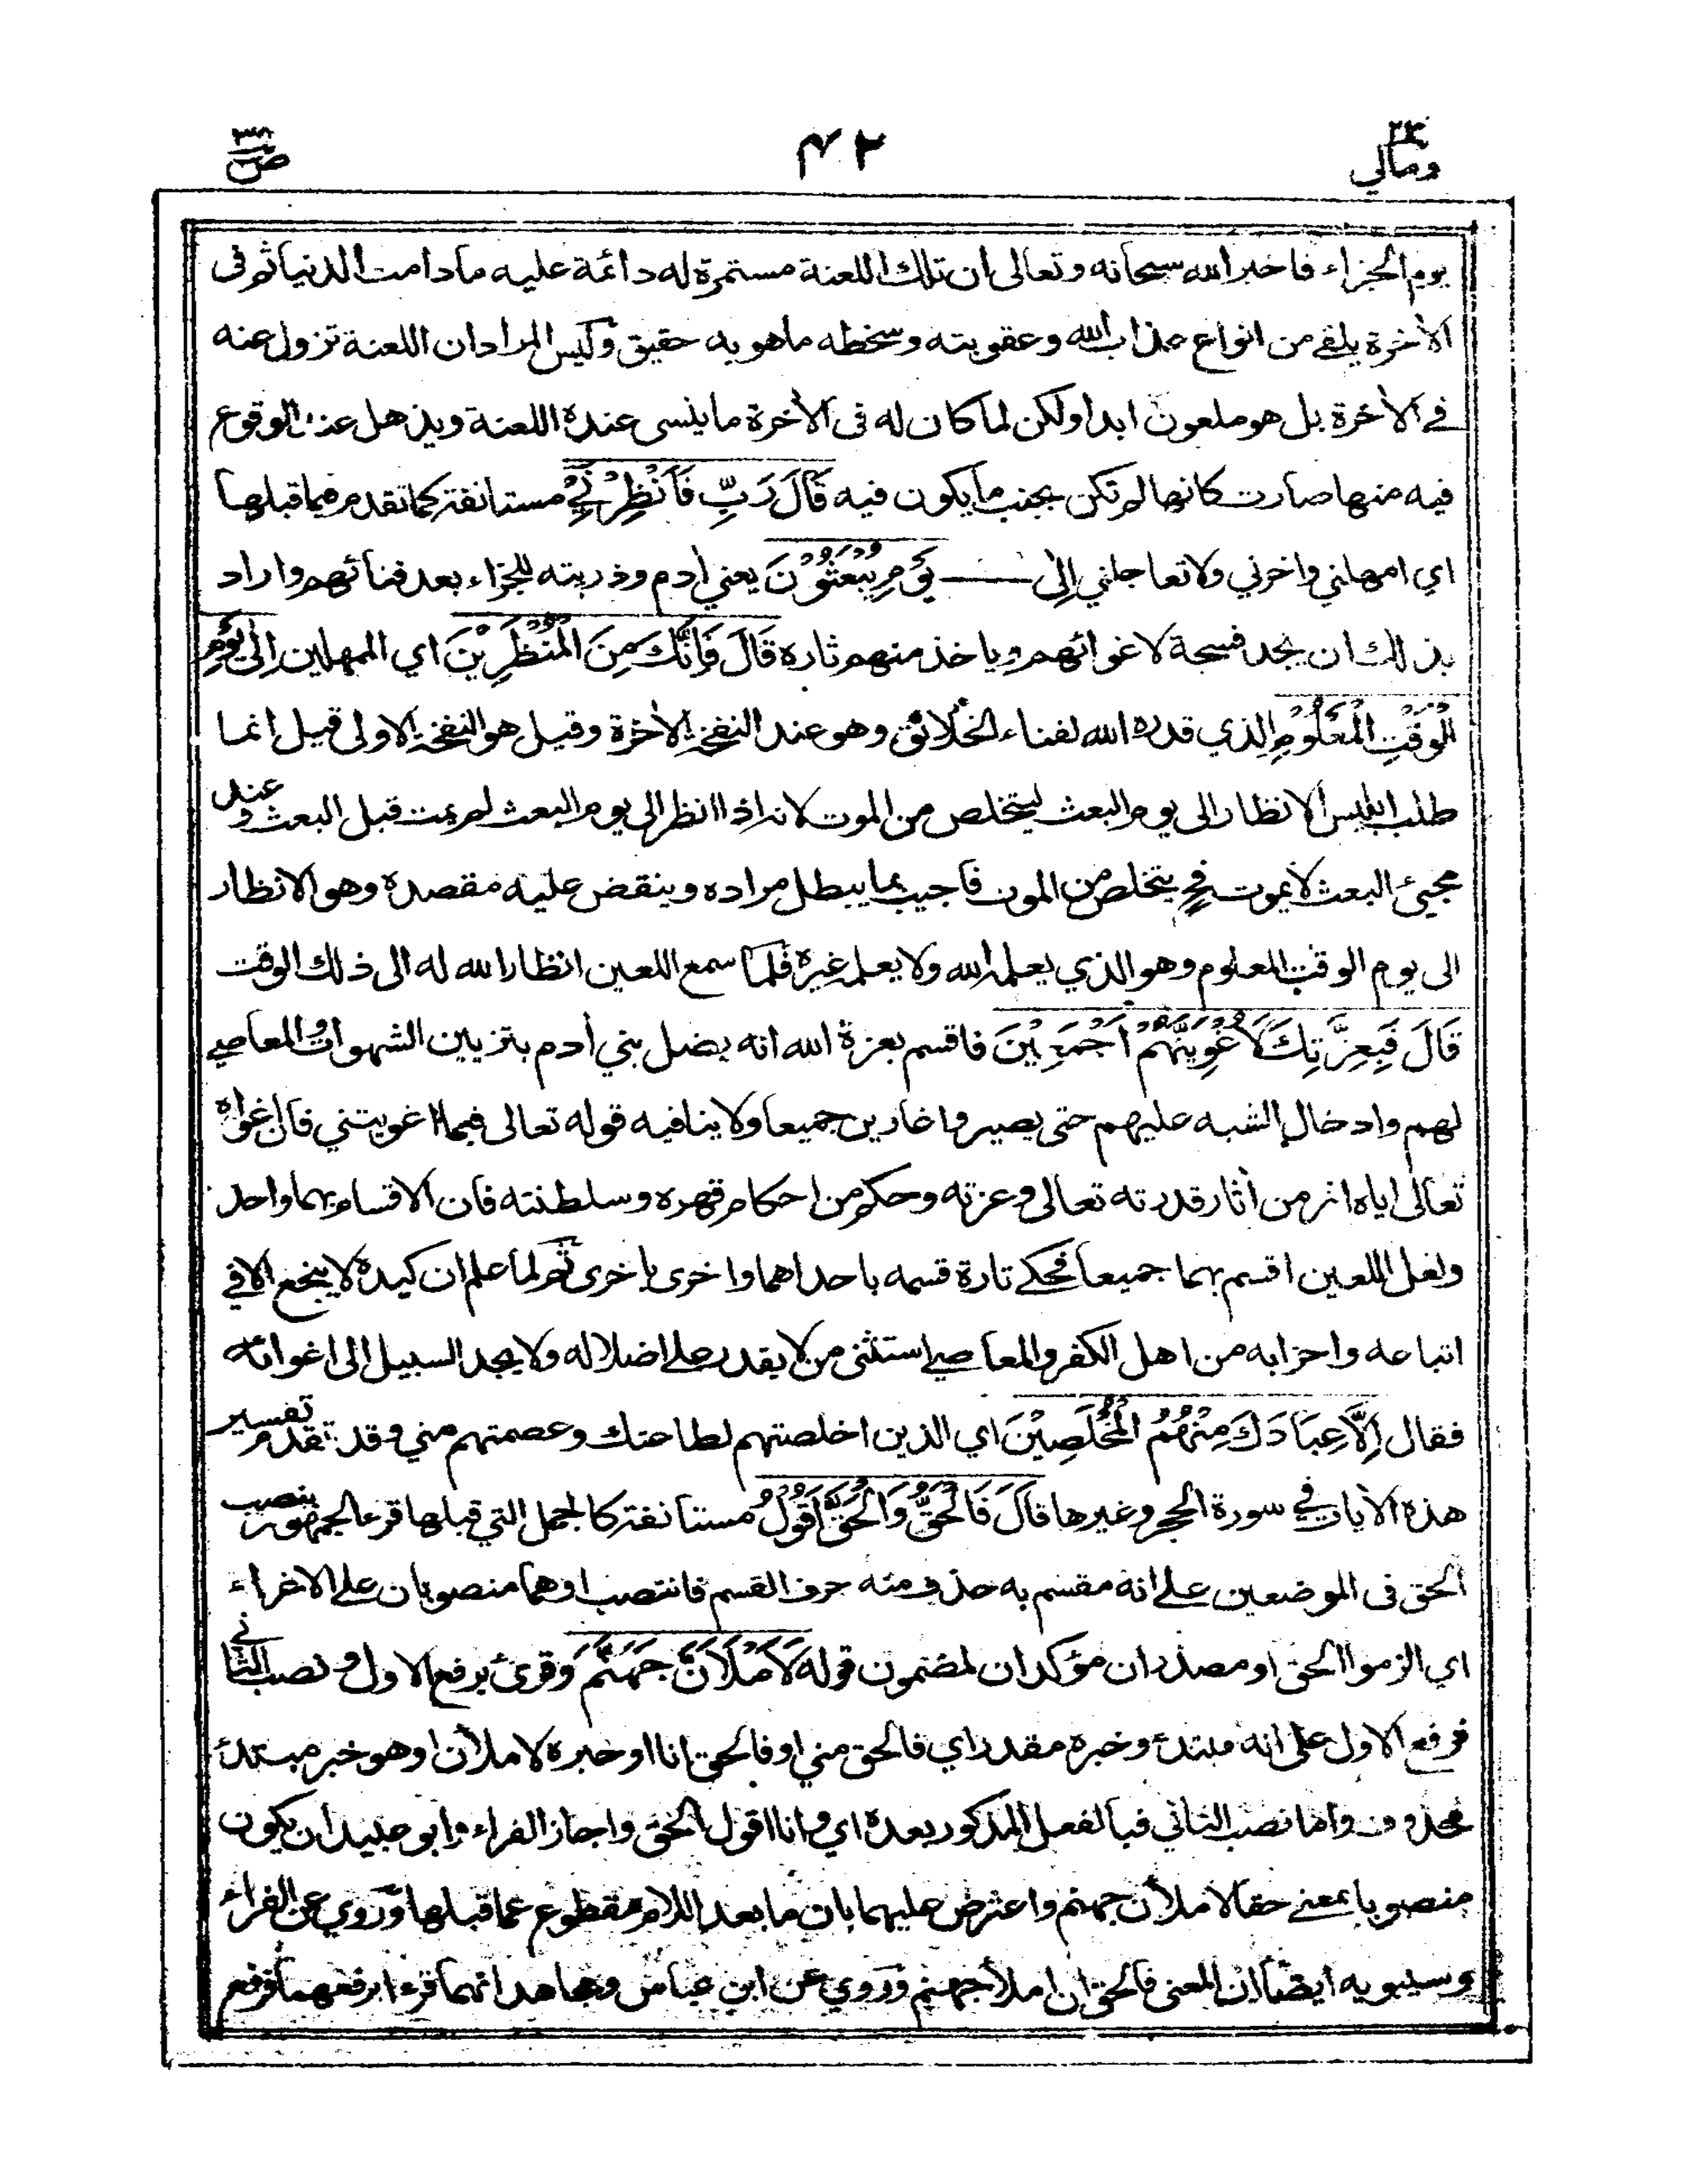 ٢٣ ومالي
٤٢
ص ٣٨
يوم الجزاء فاخبر الله سبحانه وتعالى ان تلك اللعنة مستمرة له دائمة عليه مادامت الدنيا ثم فى
الأخرة يلقى من انواع عذاب الله وعقوبته وسخطه ماهو به حقيق وليس المراد ان اللعنة تزول عنه
في الأخرة بل هو ملعون ابدا ولكن لما كان له فى الأخرة ما ينسى عنده اللعنة ويذهل عند الوقوع
فيه منها صارت كانها لم تكن بجنب ما يكون فيه قَالَ رَبِّ فَأَنْظِرْنِيْ مستانفة كما تقدم فيما قبلها
اي امهلني واخرني ولا تعاجلني إِلٰى يَوْمِ يُبْعَثُوْنَ يعني أدم وذريته للجزاء بعد فنائهم واراد
بذلك ان يجد فسحة لاغوائهم وياخذ منهم ثاره قَالَ فَإِنَّكَ مِنَ الْمُنْظَرِيْنَ اي الممهلين إِلٰى يَوْمِ
الْوَقْتِ الْمَعْلُوْمِ الذي قدره الله لفناء الخلائق وهو عند النفخة الأخرة وقيل هو النفخة الاولى قيل انما
طلب ابليس الانظار الى يوم البعث ليتخلص من الموت لانه اذا انظر الى يوم البعث لم يمت قبل البعث وعند
مجيئ البعث لا يموت فح يتخلص من الموت فاجيب بما يبطل مراده وينقض عليه مقصده وهو الانظار
الى يوم الوقت المعلوم وهو الذي يعلمه الله ولا يعلمه غيره فلما سمع اللعين انظار الله له الى ذلك الوقت
قَالَ فَبِعِزَّتِكَ لَأُغْوِيَنَّهُمْ أَجْمَعِيْنَ فاقسم بعزة الله انه يضل بني أدم بتزيين الشهوات والمعاصي
لهم وادخال الشبه عليهم حتى يصيروا غاوين جميعا ولا ينافيه قوله تعالى فبما اغويتني فان اغواه
تعالى اياه اثر من أثار قدرته تعالى وعزته وحكم من احكام قهره وسلطنته فان الاقسام بهما واحد
ولعل اللعين اقسم بهما جميعا فحكى تارة قسمه باحداهما واخرى باخرى ثم لما علم ان كيده لا ينجع الا في
اتباعه واحزابه من اهل الكفر والمعاصي استثنى من لا يقدر على اضلاله ولا يجد السبيل الى اغوائه
فقال إِلَّا عِبَادَكَ مِنْهُمُ الْمُخْلَصِيْنَ اي الذين اخلصتهم لطاعتك وعصمتهم مني وقد تقدم تفسير
هذه الأيات في سورة الحجر وغيرها قَالَ فَالْحَقُّ وَالْحَقَّ أَقُوْلُ مستانفة كالجمل التي قبلها قرء الجمهور بنصب
الحق فى الموضعين على انه مقسم به حذف منه حرف القسم فانتصب او هما منصوبان على الاغراء
اي الزموا الحق او مصدران مؤكدان لمضمون قوله لَأَمْلَأَنَّ جَهَنَّمَ وقرئ برفع الاول ونصب الثاني
فرفع الاول على انه مبتدء وخبره مقدر اي فالحق مني او فالحق انا او خبره لاملأن او هو خبر مبتدء
محذوف واما نصب الثاني فبالفعل المذكور بعده اي وانا اقول الحق واجاز الفراء وابو عبيد ان يكون
منصوبا بمعنى حقا لاملأن جهنم واعترض عليهما بان ما بعد اللام مقطوع عما قبلها وروي عن الفراء
وسيبويه ايضا ان المعنى فالحق ان املأ جهنم وروي عن ابن عباس ومجاهد انهما قرءا برفعهما فرفع